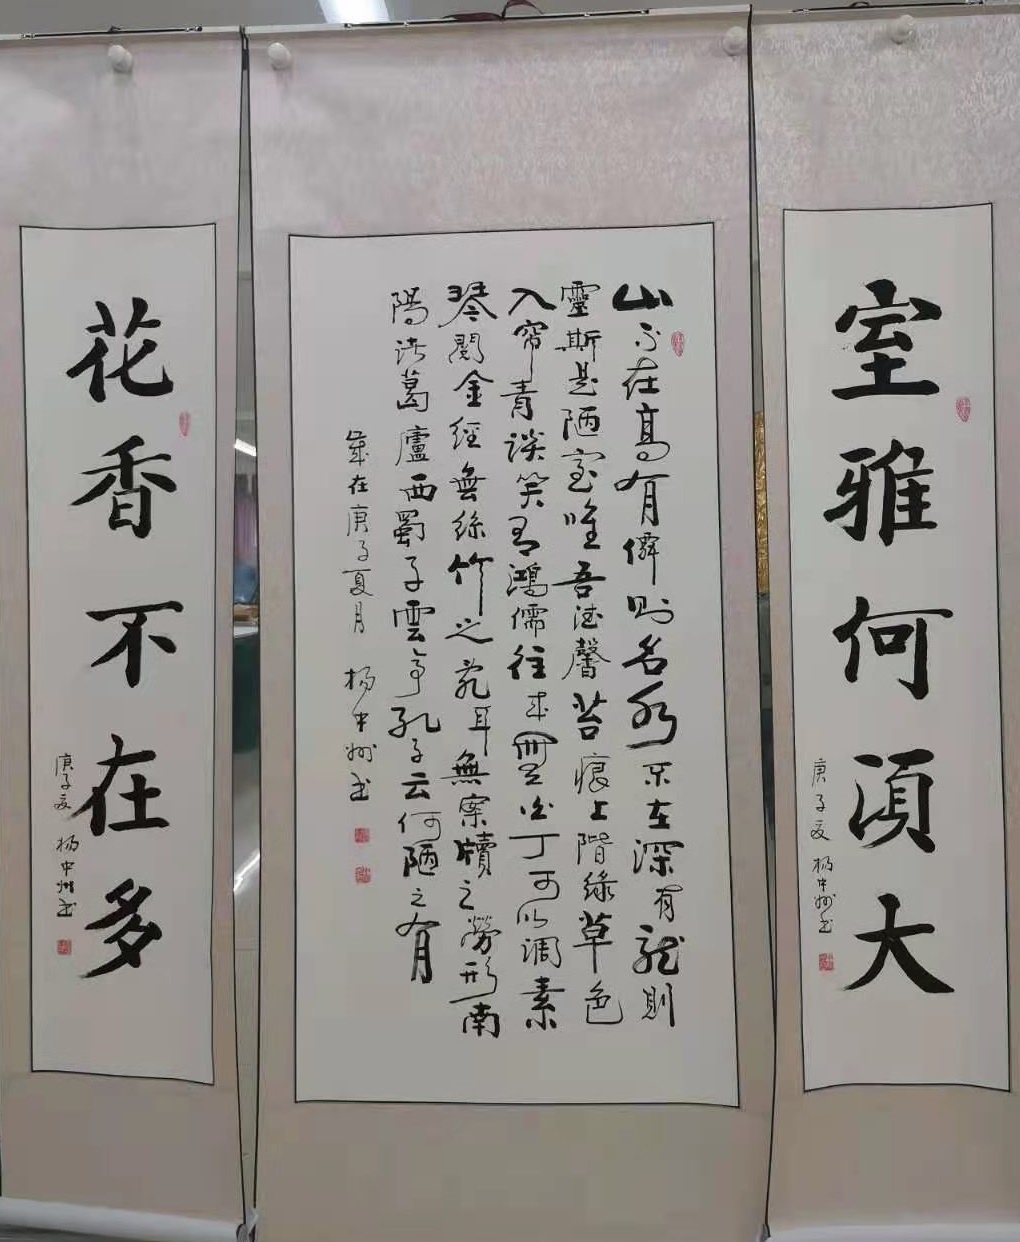 室雅何湏大
庚子夏 杨中州书
山不在高有僊则名水不在深有龙則
靈斯是陋室唯吾德馨苔痕上階綠草色
入帘青談笑有鴻儒往来無白丁可以調素
琴閱金經無絲竹之亂耳無案牘之勞形南
陽诸葛廬西蜀子雲亭孔子云何陋之有
歲在庚子夏月 杨中州书
花香不在多
庚子夏 杨中州书